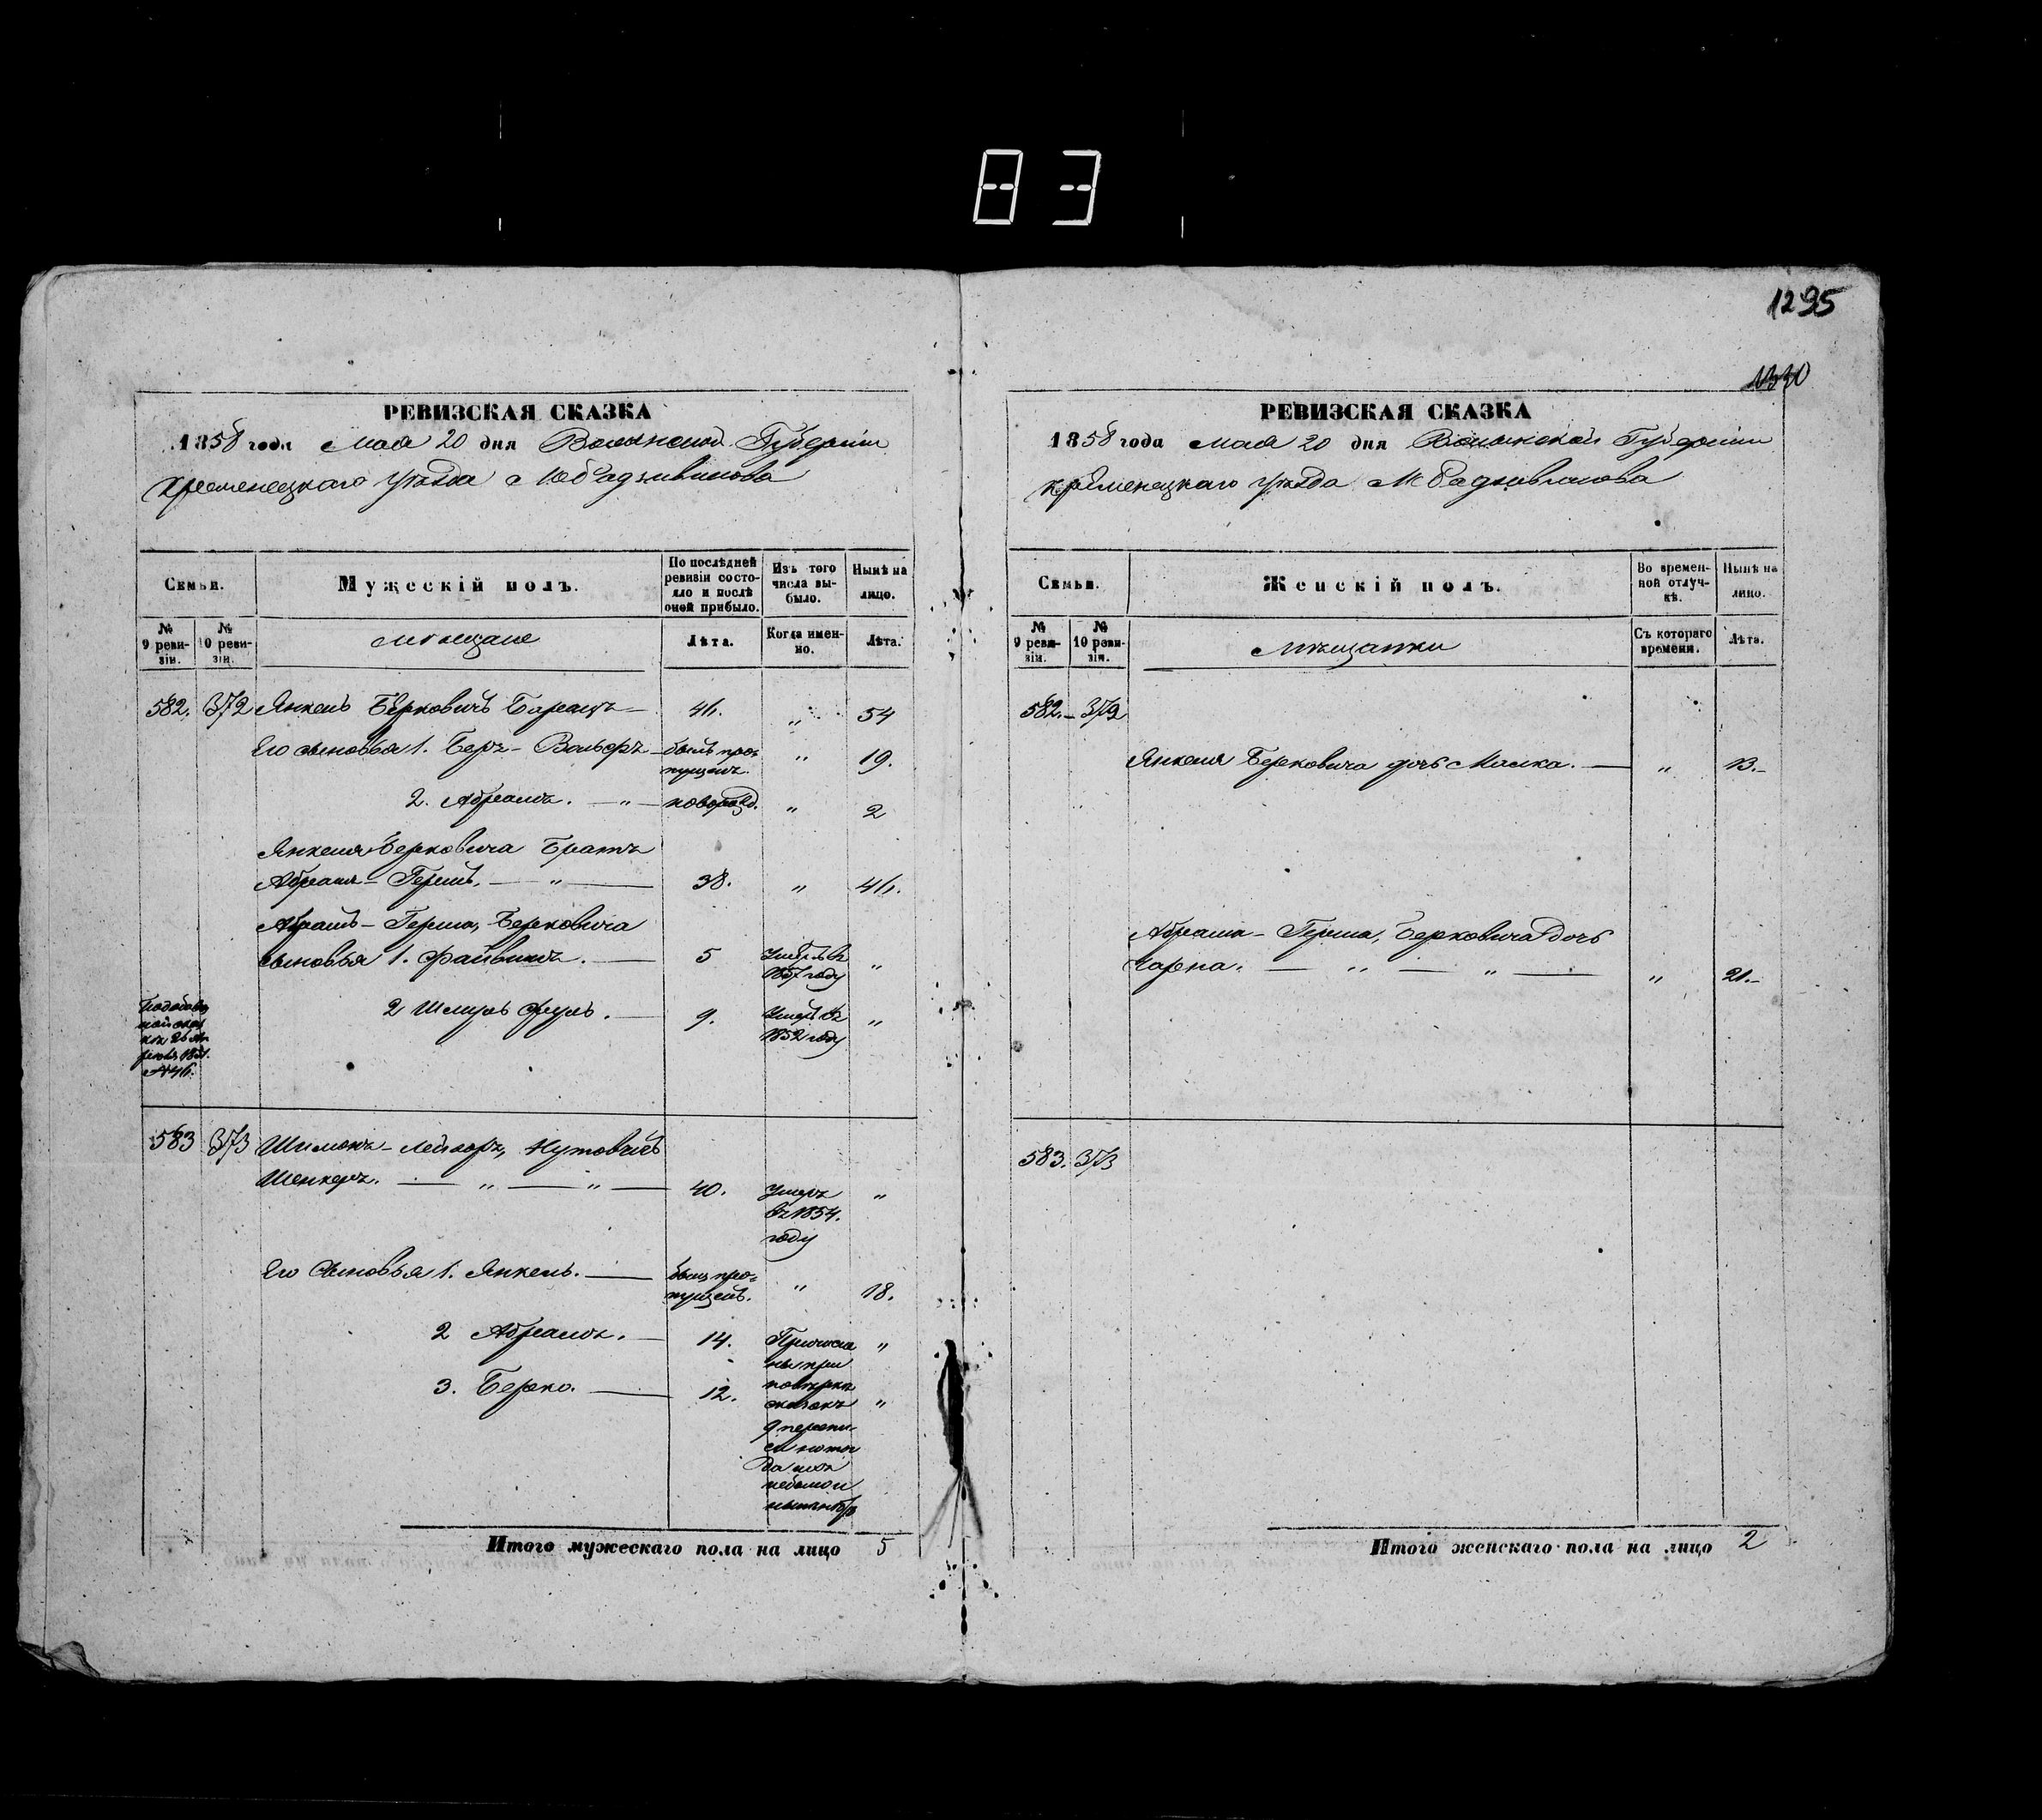 83
1295
РЕВИЗСКАЯ СКАЗКА
1858 года Мая 20 дня Волынской Губернии
Кременецкаго уѣзда Радзивилова
Семьи.
Мужескій полъ.
По послѣдней ревизіи состояло и послѣ оной прибыло.
Изъ того числа выбыло.
Нынѣ на лицо.
№ 9 ревизіи.
№ 10 ревизіи.
Мѣщане
Лѣта.
Когда именно.
Лѣта.
582. 372 Янкель Берковичъ 46. „ 54
Его сыновья 1. Беръ-Вольфъ был пропущенъ. „ 19.
2. Абрамъ. — „ — новорожд. „ 2
Янкеля Берковича Братъ
Абрамъ-Гершъ. — „ — 38. „ 46.
Абрамъ-Герша, Берковича
сыновья 1. Файвишъ. — 5 Умеръ въ 1857 году „
2 Шмуль Сруль. — 9. Умеръ въ 1852 году „
583 373 Шимонъ-Лейзоръ, Нутовичъ
Шенкеръ. — „ — „ — 40. Умеръ въ 1854. году „
Его Сыновья 1. Янкель. — был пропущенъ. „ 18.
2 Абрамъ. — 14. „
3. Берко. — 12. „
Итого мужескаго пола на лицо 5
РЕВИЗСКАЯ СКАЗКА
1858 года Мая 20 дня Волынской Губернии
Кременецкаго уѣзда М Радзивилова
Семьи.
Женскій полъ.
Во временной отлучкѣ.
Нынѣ на лицо.
№ 9 ревизіи.
№ 10 ревизіи.
Мѣщанки
Съ котораго времени.
Лѣта.
582. 372
Янкеля Берковича дочь Малка. — „ 13.
Абрама-Герша, Берковича дочь
Чарна. — „ — „ — „ 21.
583. 373
Итого женскаго пола на лицо 2